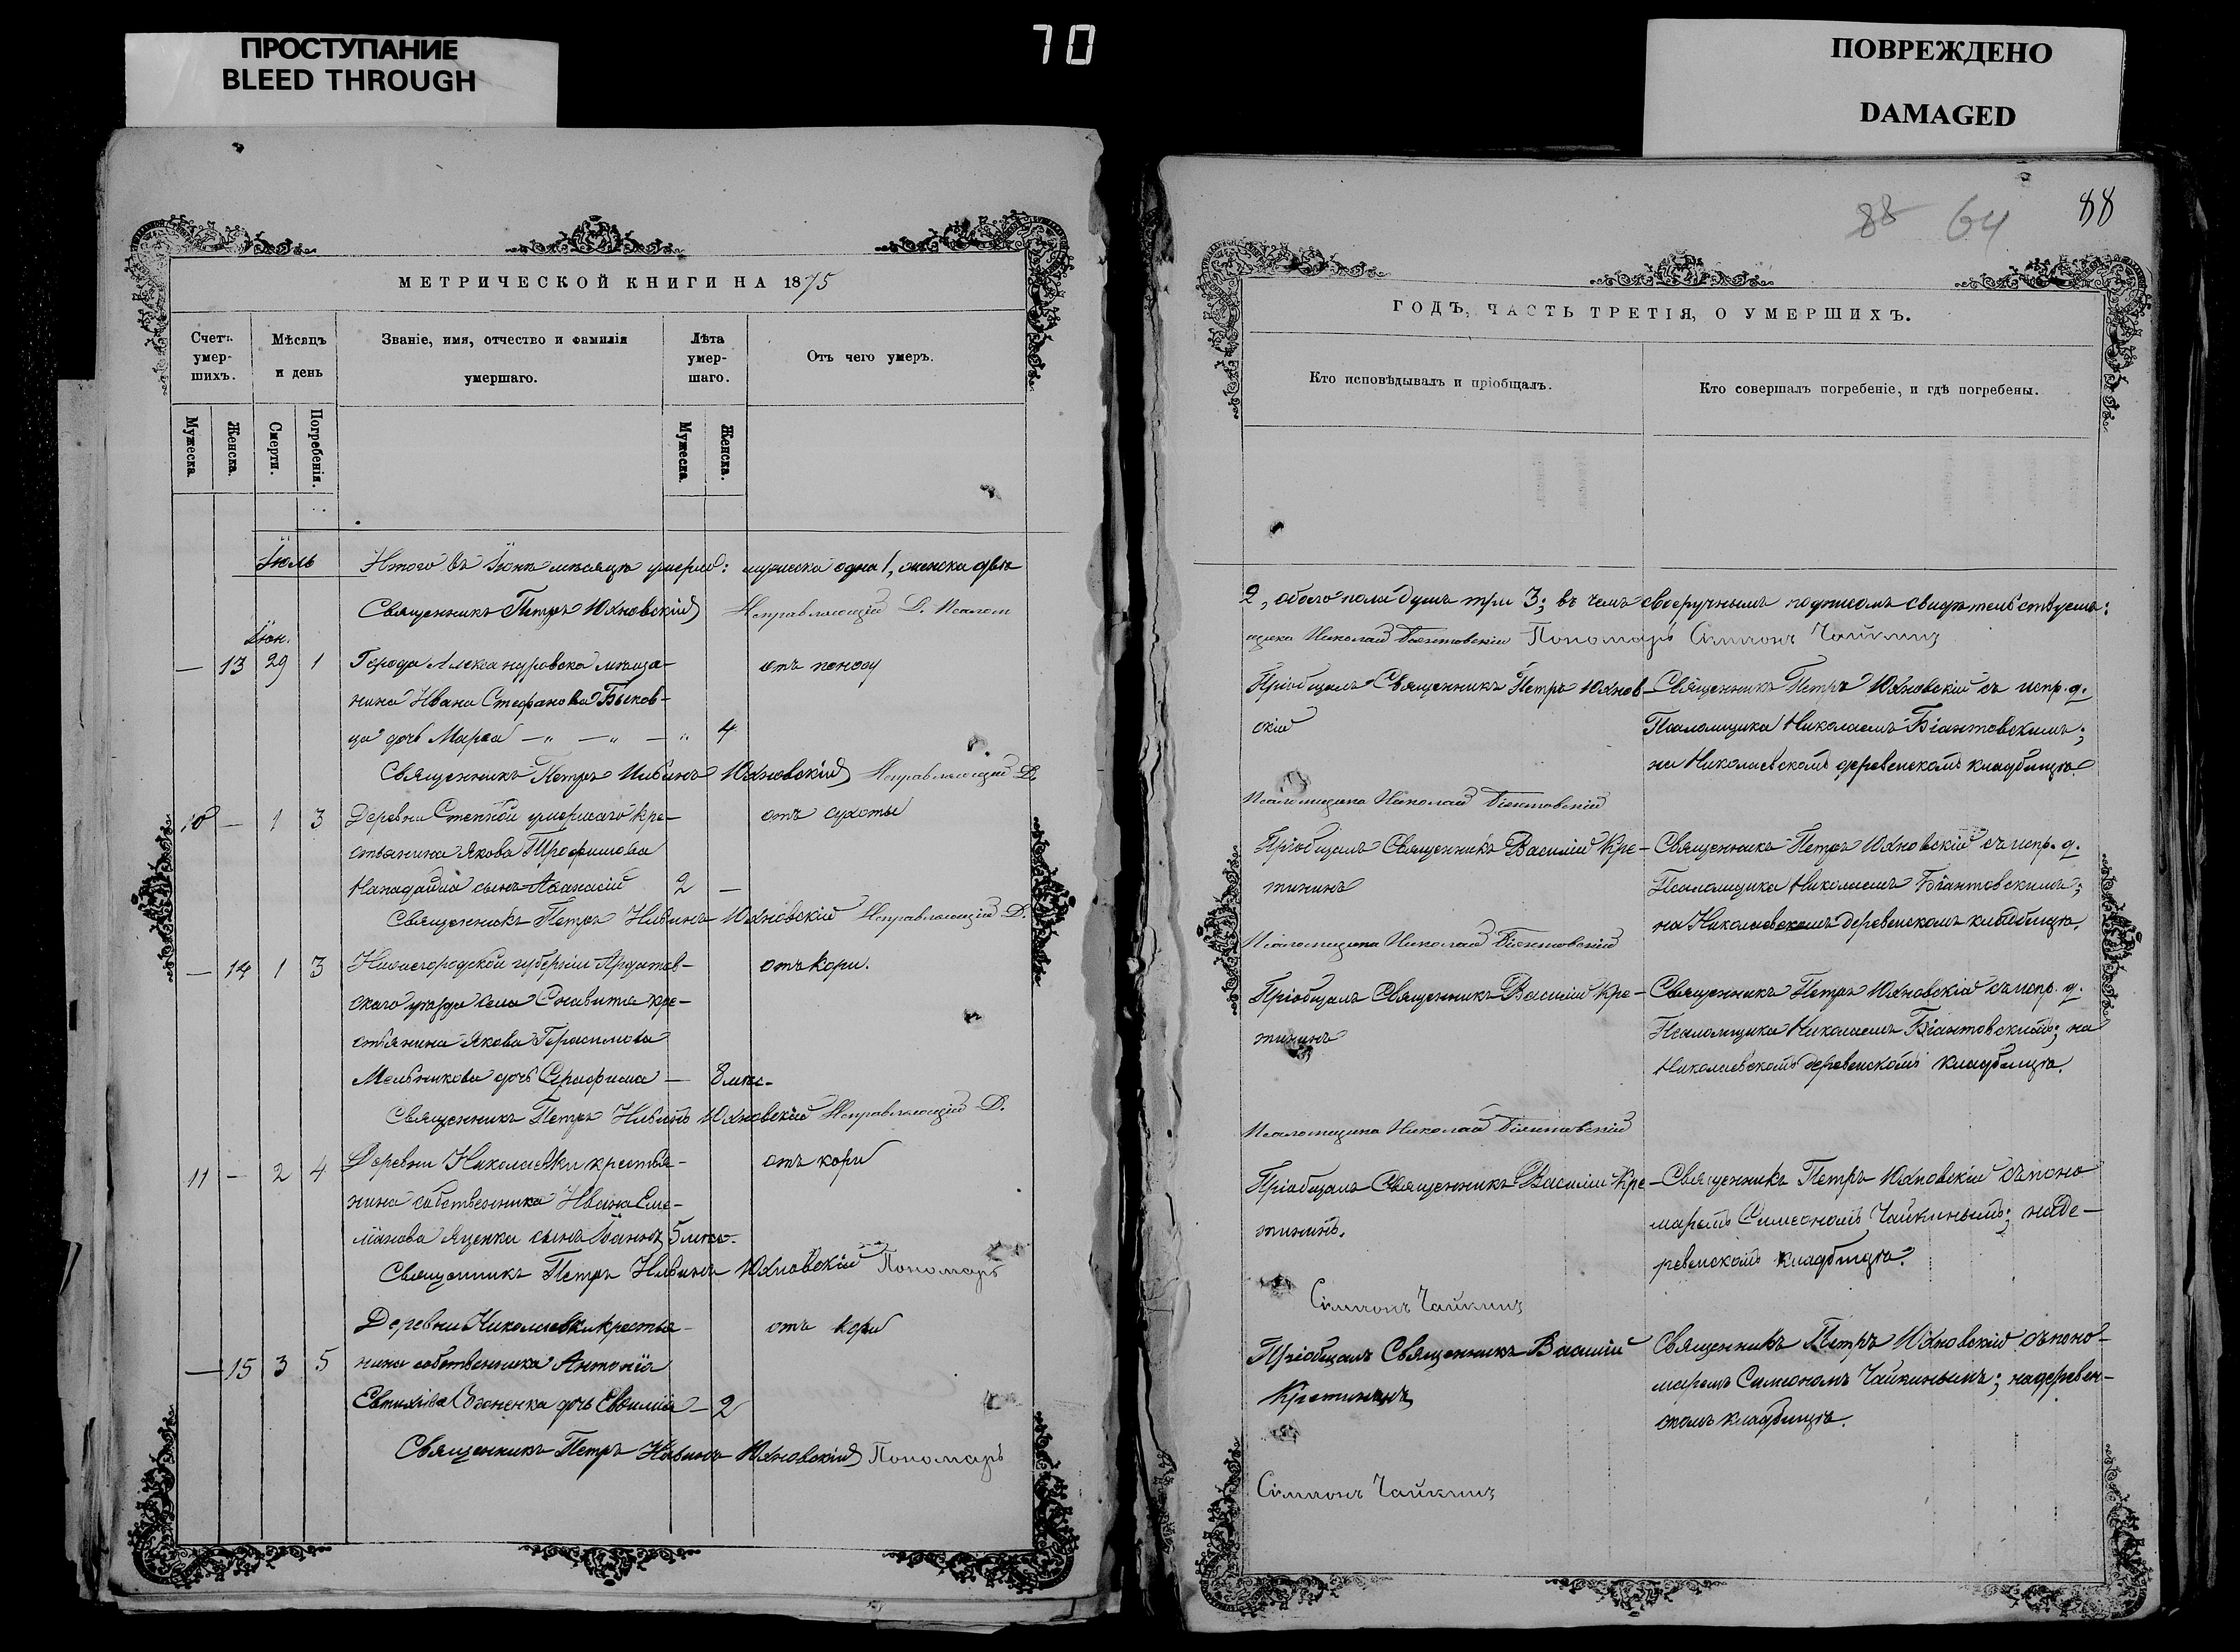 ПРОСТУПАНИЕ
BLEED THROUGH
70
ПОВРЕЖДЕНО
DAMAGED
МЕТРИЧЕСКОЙ КНИГИ НА 1875
Счетъ умер-шихъ.
Мѣсяцъ и день
Званіе, имя, отчество и фамилія умершаго.
Лѣта умер-шаго.
Отъ чего умеръ.
Мужеска.
Женска.
Смерти.
Погребенія.
Мужеска.
Женска.
Іюль Итого въ Іюнѣ мѣсяцѣ умерло: мужеска одна 1, женска двѣ
Священникъ Петръ Юхновскій Исправляющій Д. Псалом
Іюн.
— 13 29 1 Города Александровска мѣща- отъ поносу
нина Ивана Стефанова Быков-
ца дочь Марѳа —„— —„— —„ 4
Священникъ Петръ Ильинъ Юхновскій Исправляющій Д.
10 — 1 3 Деревни Степной умершаго кре- отъ сухоты
стьянина Якова Трофимова
сынъ Аѳанасій 2 —
Священникъ Петръ Ильинъ Юхновскій Исправляющій Д.
— 14 1 3 Нижегородской губерніи Ардатов- отъ кори.
скаго уѣзда села кре-
стьянина Якова Герасимова
Мельникова дочь Серафима — 8 мѣс.
Священникъ Петръ Ильинъ Юхновскій Исправляющій Д.
11 — 2 4 Деревни Николаевки крестья- отъ кори
нина собственника Ивана Си-
Яценка сынъ Іоаннъ 5 мѣс.
Священникъ Петръ Ильинъ Юхновскій Пономарь
Деревни Николаевки крестья- отъ кори
— 15 3 5 нина собственника Антонія
Евтихіева дочь Евѳимія — 2
Священникъ Петръ Ильинъ Юхновскій Пономарь
88 64 88
ГОДЪ, ЧАСТЬ ТРЕТІЯ, О УМЕРШИХЪ.
Кто исповѣдывалъ и пріобщалъ.
Кто совершалъ погребеніе, и гдѣ погребены.
2, обоего пола душъ три 3; въ чемъ своеручнымъ подписомъ свидѣтельствуемъ:
щика Николай Біянтовскій Пономарь Симеонъ Чайкинъ
Пріобщалъ Священникъ Петръ Юхнов-
скій
Священникъ Петръ Юхновскій съ испр. д.
Псаломщика Николаемъ Біантовскимъ;
на Николаевскомъ деревенскомъ кладбищѣ.
Псаломщика Николай Біянтовскій
Пріобщалъ Священникъ Василій Кре-
тининъ
Священникъ Петръ Юхновскій съ испр. д.
Псаломщика Николаемъ Біантовскимъ;
на Николаевскомъ деревенскомъ кладбищѣ.
Псаломщика Николай Біянтовскій
Пріобщалъ Священникъ Василій Кре-
тининъ
Священникъ Петръ Юхновскій съ испр. д.
Псаломщика Николаемъ Біантовскимъ; на
Николаевскомъ деревенскомъ кладбищѣ.
Псаломщика Николай Біянтовскій
Пріобщалъ Священникъ Василій Кре-
тининъ.
Священникъ Петръ Юхновскій съ поно
маремъ Симеономъ Чайкинымъ; на де-
ревенскомъ кладбищѣ.
Симеонъ Чайкинъ
Пріобщалъ Священникъ Василій
Кретининъ
Священникъ Петръ Юхновскій съ поно-
маремъ Симеономъ Чайкинымъ; на деревен-
скомъ кладбищѣ.
Симеонъ Чайкинъ